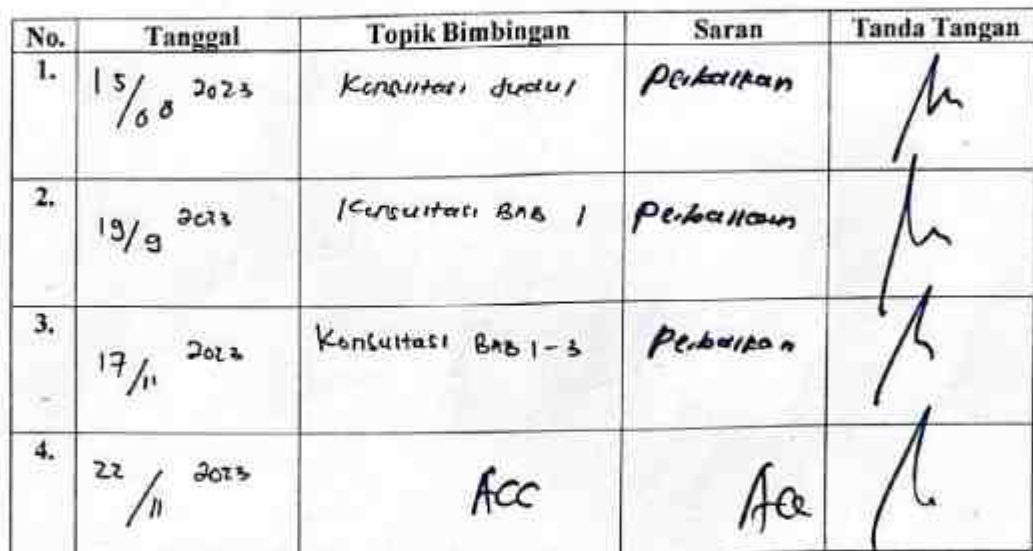 No. Tanggal Topik Bimbingan Saran Tanda Tangan
1. 15/08 2023 Konsultasi Judul Perbaikan
2. 19/9 2023 Konsultasi BAB 1 Perbaikan
3. 17/11 2023 Konsultasi BAB 1-3 Perbaikan
4. 22/11 2023 ACC Acc